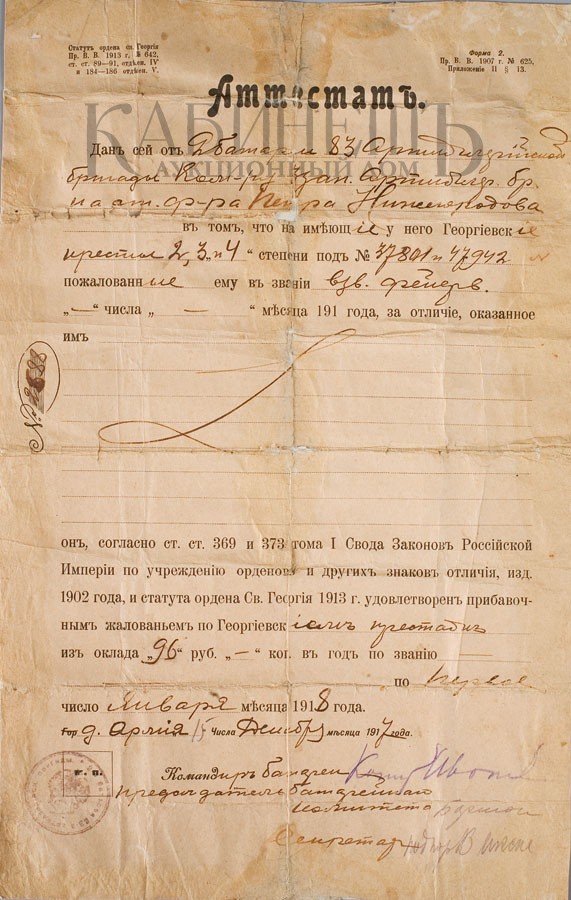 Статутъ ордена св. Георгія
Пр. В. В. 1913 г. № 642,
ст. ст. 89—91, отдѣлен. IV
и 184—186 отдѣлен. V.
Форма 2.
Пр. В. В. 1907 г. № 625,
Приложеніе II § 13.
Аттестатъ.
КАБИНЕТЪ
АУКЦИОННЫЙ ДОМ
Данъ сей отъ 83
бригады
Нижегородова
въ томъ, что на имѣющіе у него Георгіевскіе
кресты 2, 3 и 4 степени подъ № 37801 и 47942
пожалованные ему въ званіи взв. фейерв.
„—“ числа „ — “ мѣсяца 191 года, за отличіе, оказанное
имъ
онъ, согласно ст. ст. 369 и 373 тома I Свода Законовъ Россійской
Имперіи по учрежденію орденовъ и другихъ знаковъ отличія, изд.
1902 года, и статута ордена Св. Георгія 1913 г. удовлетворен прибавоч-
нымъ жалованьемъ по Георгіевскимъ крестамъ
изъ оклада „96“ руб. „—“ коп. въ годъ по званію —
по первое
число Января мѣсяца 1918 года.
д. Армія 15 числа Декабря мѣсяца 1917 года.
м. п.
Командиръ батареи
председатель батарейнаго
комитета
Секретарь